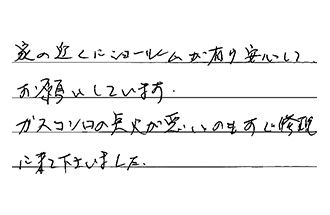 家の近くにショールームが有り安心して
お願いしています.
ガスコンロの点火が悪いのもすぐ修理
に来て下さいました.